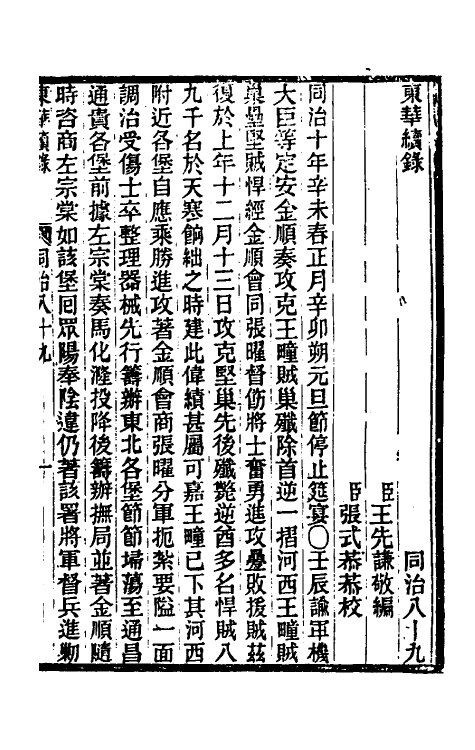 東華續錄　同治八十九
臣王先謙敬編
臣張式恭恭校
同治十年辛未春正月辛卯朔元旦節停止筵宴〇壬辰諭軍機
大臣等定安金順奏攻克王疃賊巢殲除首逆一摺河西王疃賊
巢壘堅賊悍經金順會同張曜督飭將士奮勇進攻疊敗後賊茲
復於上年十二月十三日攻克堅巢先後殲斃逆酋多名悍賊八
九千名於天寒餉絀之時建此偉績甚屬可嘉王疃已下其河西
附近各堡自應乘勝進攻著金順會商張曜分軍扼紮要隘一面
調治受傷士卒整理器械先行籌辦東北各堡節節埽蕩至通昌
通貴各堡前據左宗棠奏馬化漋投降後籌辦撫局並著金順隨
時咨商左宗棠如該堡囘眾陽奉陰違仍著該署將軍督兵進勦
東華續錄　同治八十九　一